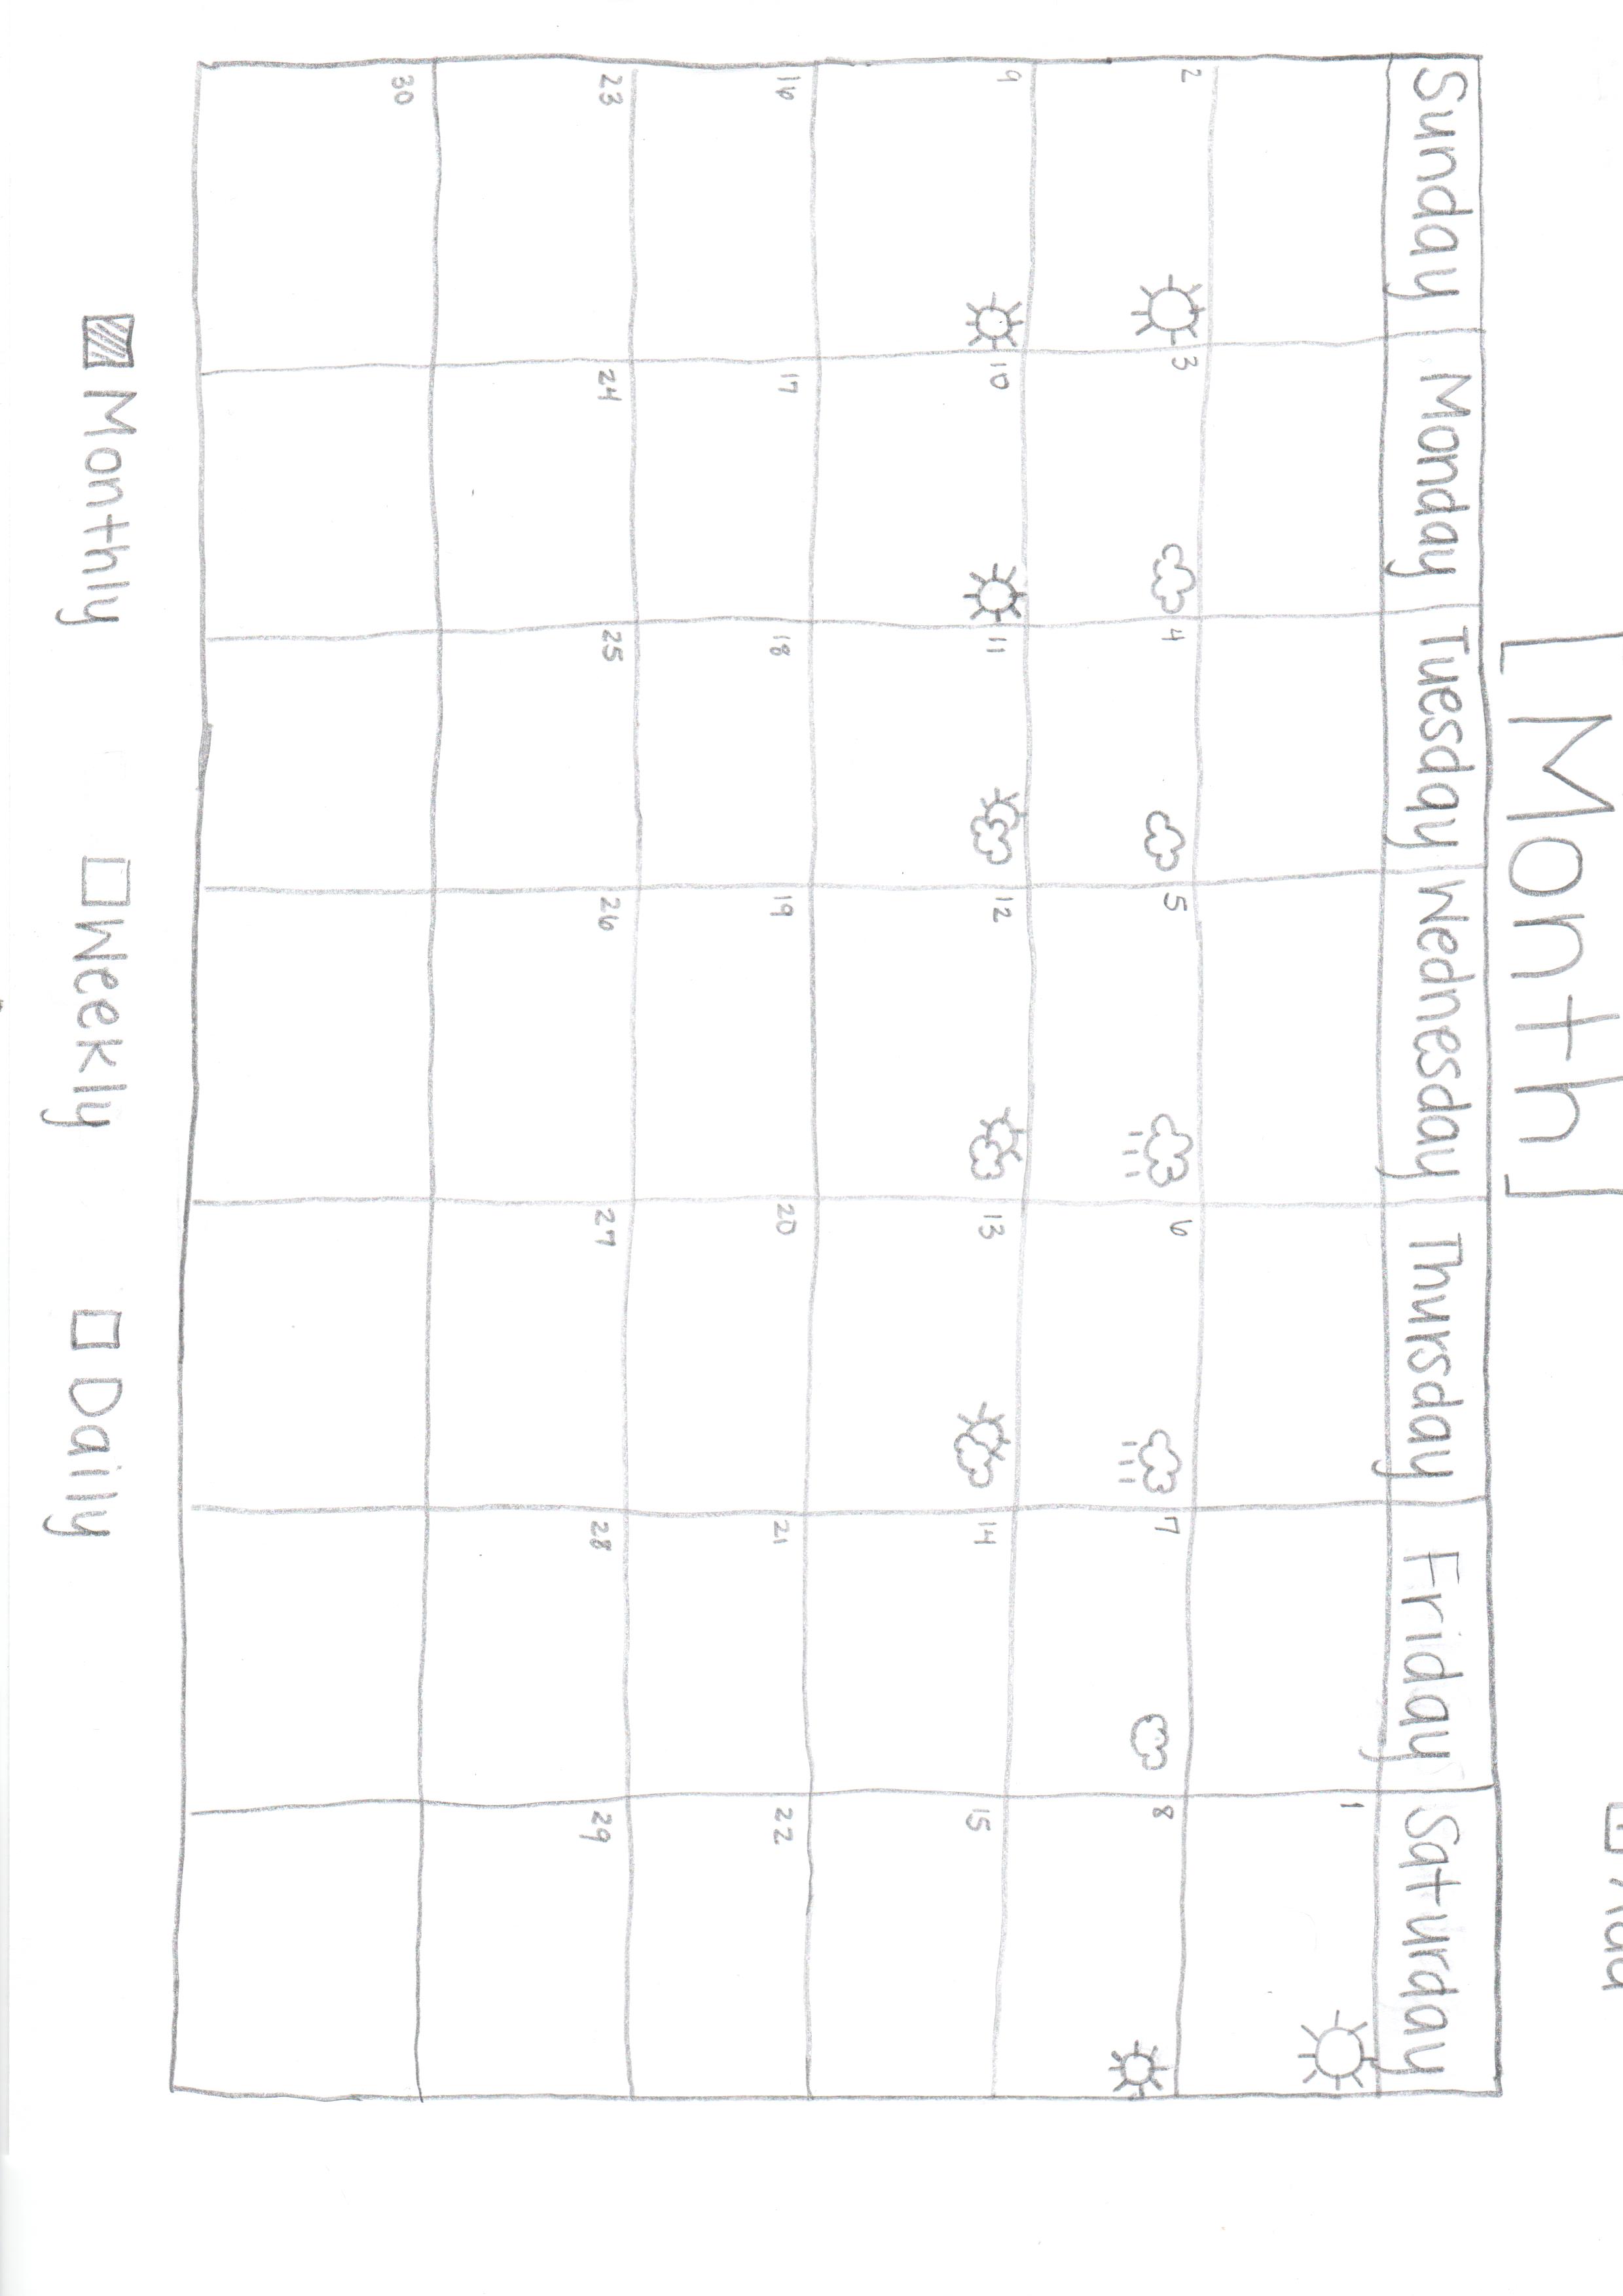 [Month]
Sunday Monday Tuesday Wednesday Thursday Friday Saturday
1
2 3 4 5 6 7 8
9 10 11 12 13 14 15
16 17 18 19 20 21 22
23 24 25 26 27 28 29
30
Monthly Weekly Daily